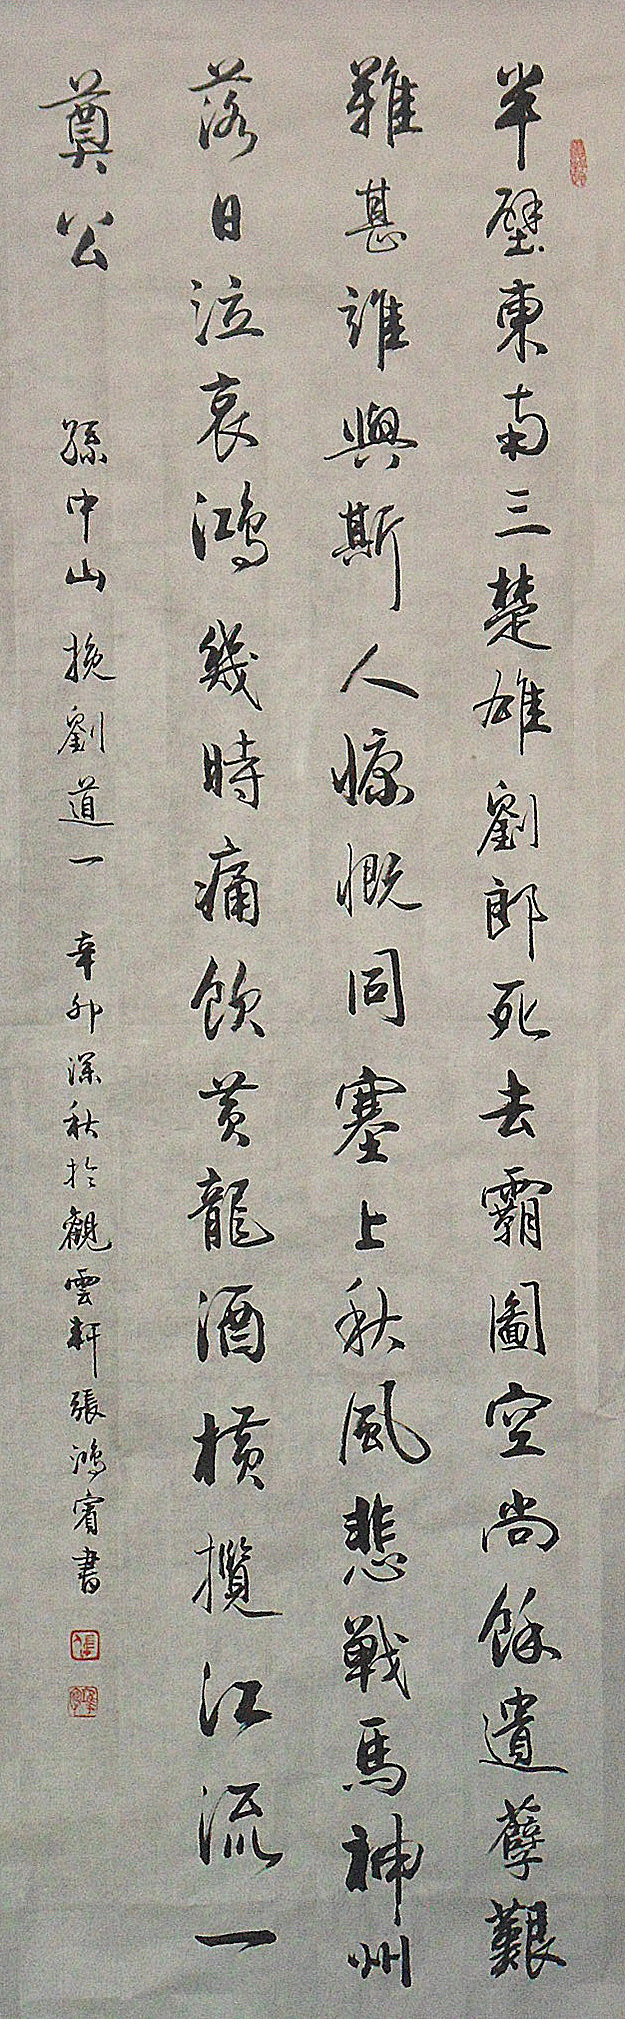 半壁東南三楚雄劉郎死去霸圖空尚餘遺孽艱
難甚誰與斯人慷慨同塞上秋風悲戰馬神州
落日泣哀鴻幾時痛飲黃龍酒橫攬江流一
奠公 孫中山挽劉道一 辛卯深秋於觀雲軒張鴻賓書